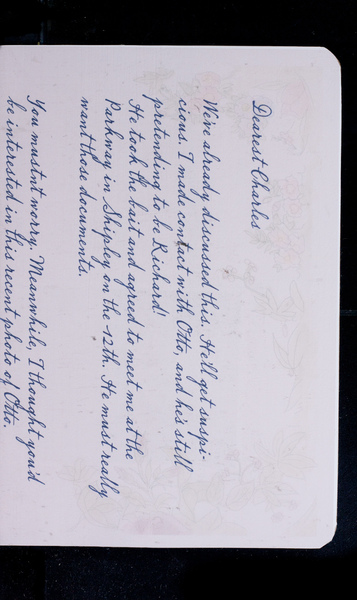 Dearest Charles
We've already discussed this. He'll get suspi-
cious. I made contact with Otto, and he's still
pretending to be Richard!
He took the bait and agreed to meet me at the
Parkway in Shipley on the 12th. He must really
want those documents.
You mustnt worry. Meanwhile, I thought you'd
be interested in this recent photo of Otto.